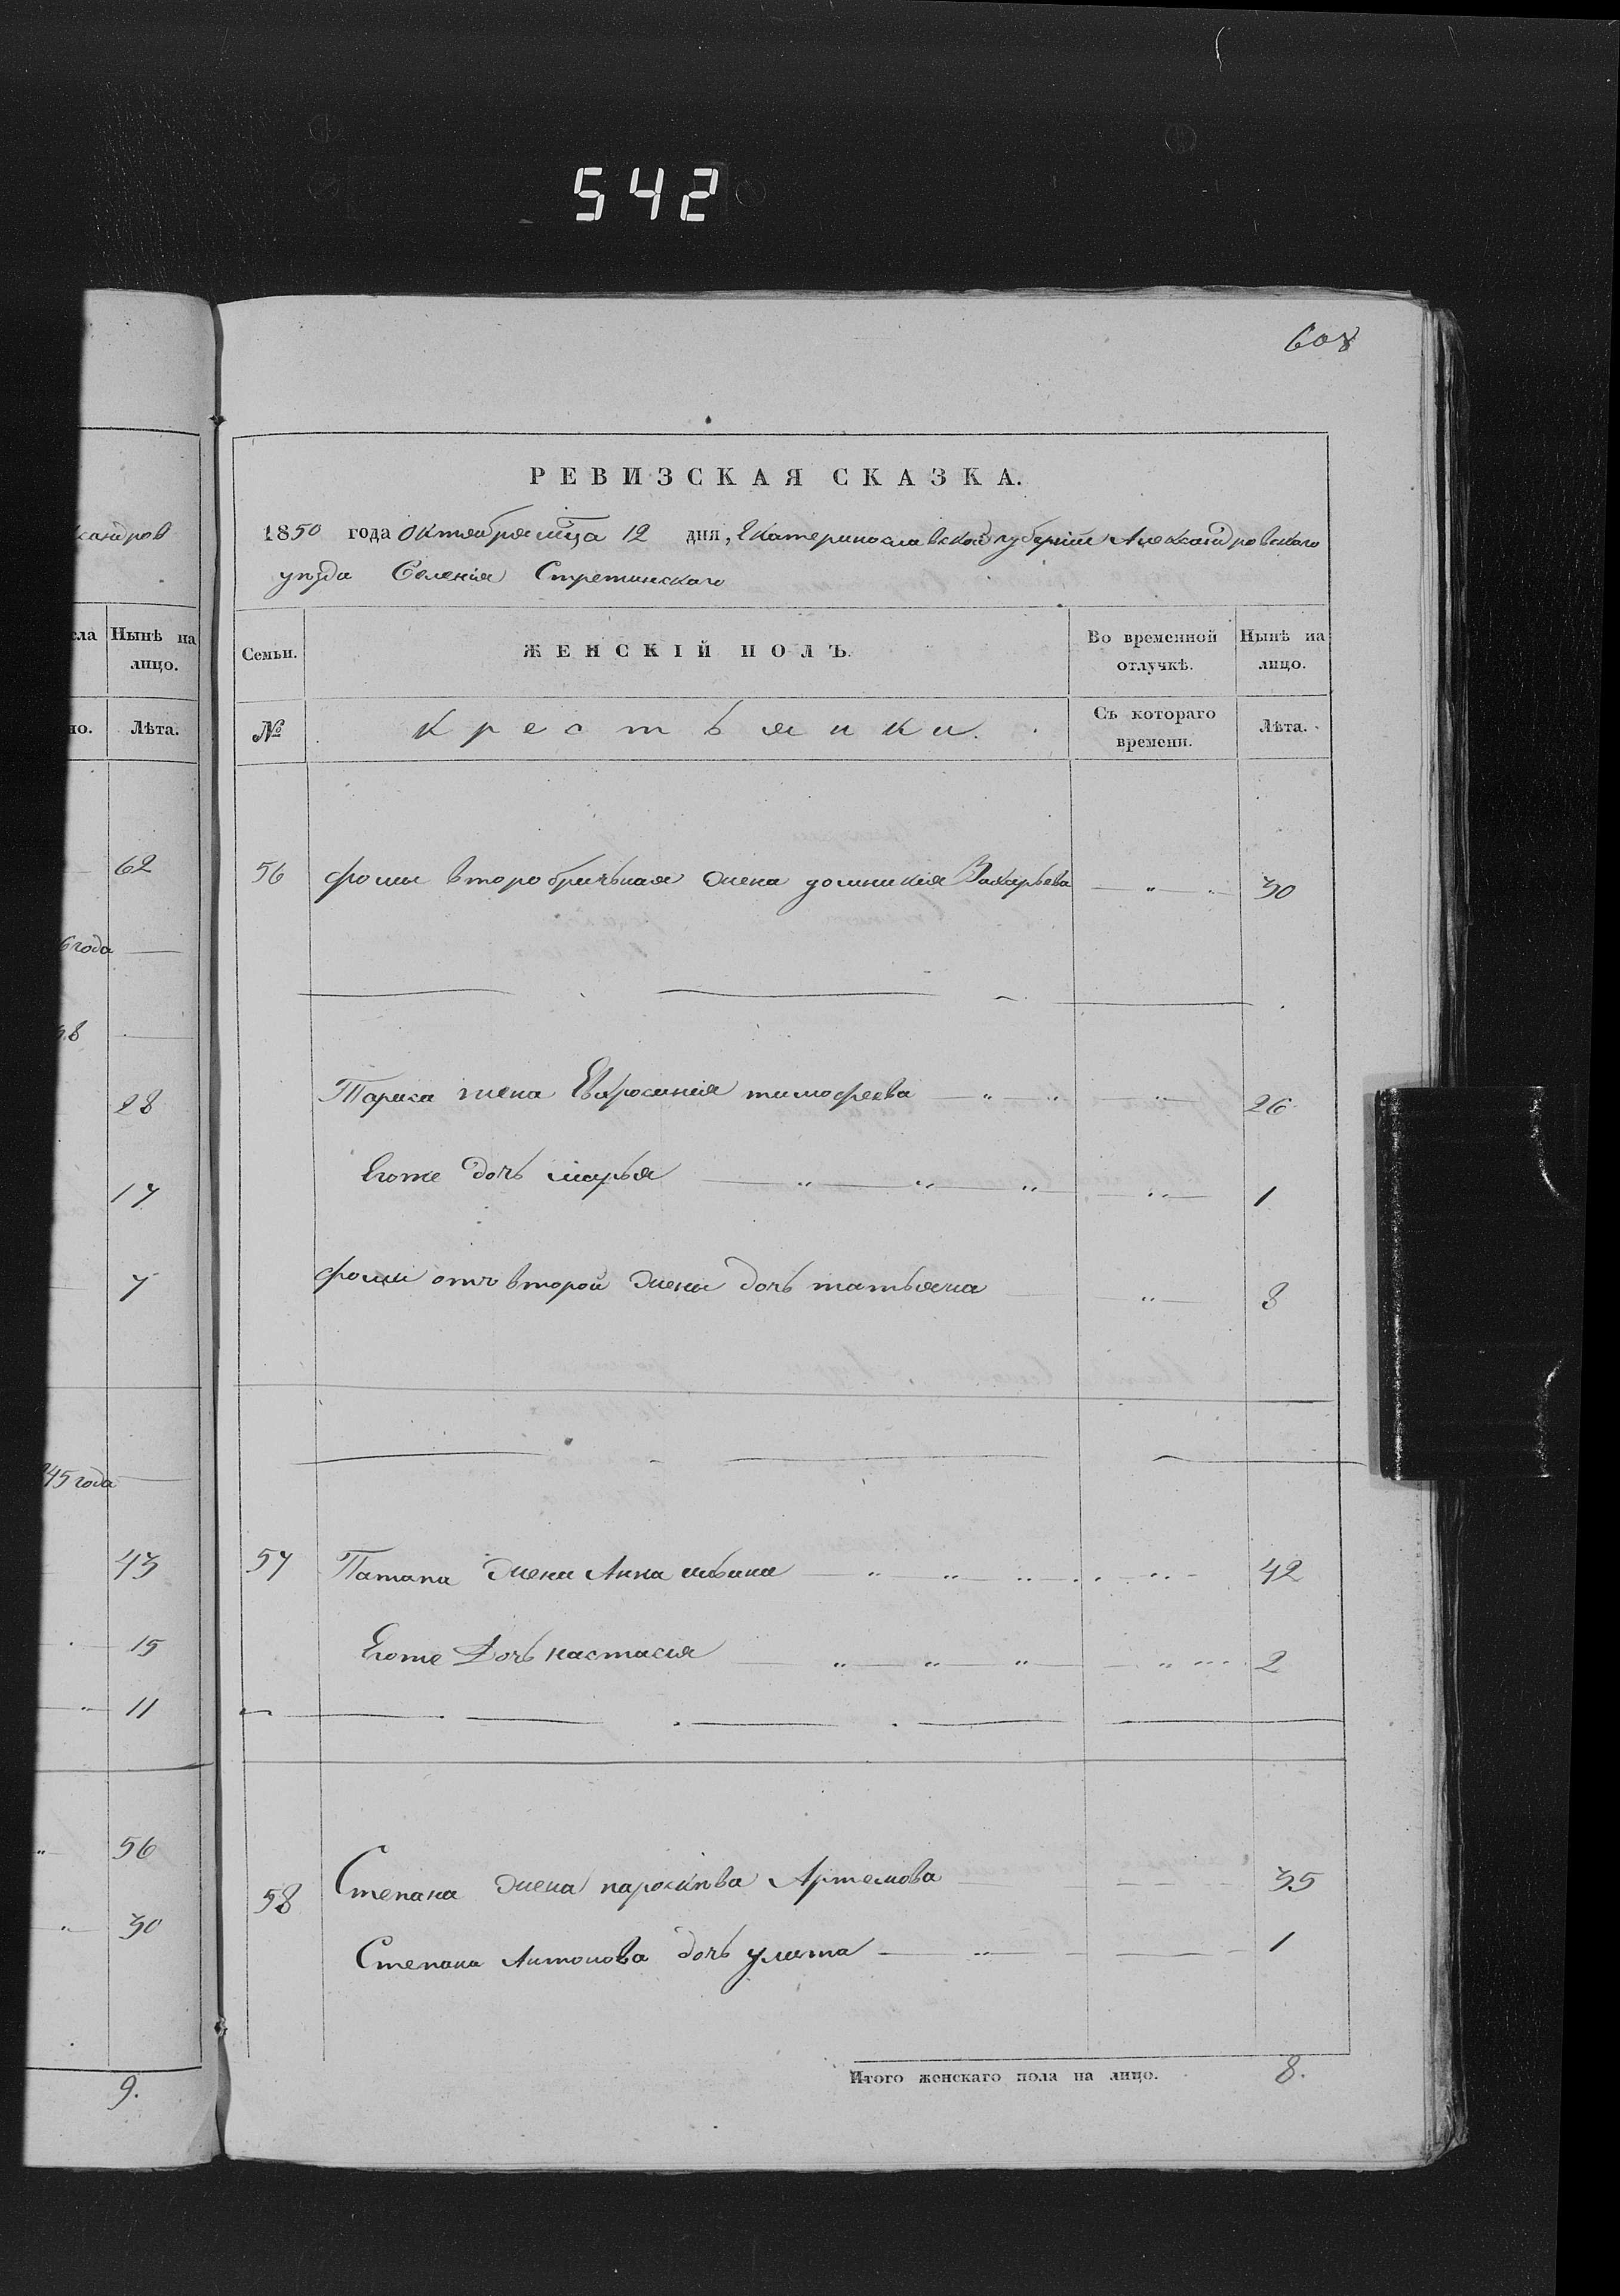 542
608
РЕВИЗСКАЯ СКАЗКА.
1850 года октября мца 12 дня, Екатеринославской губернии Александровскаго
уезда Селенія Стретинскаго
Семьи.
ЖЕНСКІЙ ПОЛЪ.
Во временной отлучкѣ.
Нынѣ на лицо.
№
Крестьянки.
Съ котораго времени.
Лѣта.
56 фомы второбрачьная жена домникия Захарьева 30
Тараса жена Евфросиния тимофеева 26
Егоже дочь марья 1
фомы отъ второй жены дочь татьяна 8
57 Патапа жена Анна 42
Егоже Дочь настасия 2
58 Степана жена параскева Артемова 35
Степана Антонова дочь улита 1
Итого женскаго пола на лицо. 8.
ксандров
сла
Нынѣ на лицо.
но.
Лѣта.
62
6 года
28
17
7
45 года
43
15
11
56
30
9.